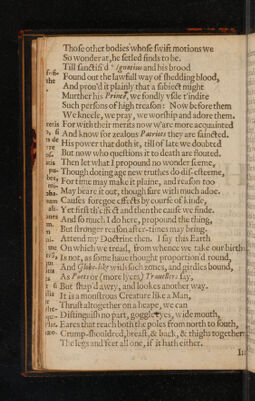 Those other bodies whose swift motions we
So wonder at, he setled finds to be.
Till sanctifi'd Ignatius and his brood
Found out the lawfull way of shedding blood,
And prou'd it plainly that a subiect might
Murther his Prince, we fondly vsde t'indite
Such persons of high treason: Now before them
We kneele, we pray, we worship and adore them.
For with their merits now w'are more acquainted
And know for zealous Patriots they are sainćted.
His power that doth it, till of late we doubted
But now who questions it to death are flouted.
Then let what I propound no wonder seeme,
Though doting age new truthes do dis-esteeme,
For time may make it plaine, and reason too
May beare it out, though sure with much adoe.
Causes foregoe effects by course of kinde,
Yet first th'effect and then the cause we finde.
And so much I do here, propound the thing,
But stronger reason after-times may bring.
Attend my Doctrine then. I say this Earth
On which we tread, from whence we take our birth
Is not, as some haue thought proportion'd round,
And Globe-like with such zones, and girdles bound,
As Poets or (more lyers) Trauellers say,
But shap'd awry, and lookes another way.
It is a monstrous Creature like a Man,
Thrust altogether on a heape, we can
Distinguish no part, goggle eyes, wide mouth,
Eares that reach both the poles from north to south,
Crump-shouldred, breast, & back, & thighs together
The legs and feet all one, if it hath either.